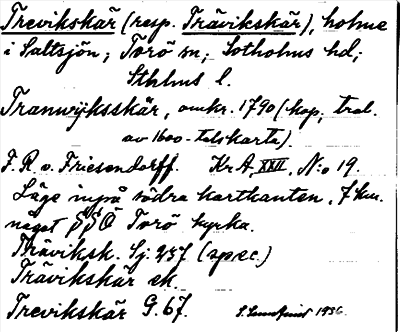 Trevikskär (resp. Trävikskär), holme
i Saltsjön; Torö sn; Sotholms hd;
Sthlms l.
Tranwijksskär, omkr. 1790 (kop, trol.
av 1600-talskarta).
F. R. v. Friesendorff. Kr A XXII, N:o 19.
Läge inpå södra kartkanten, 7 km.
något SSÖ Torö kyrka.
Träviksk. Sj. 237 (spec.)
Trävikskär ek.
Trevikskär G. 67. 1936